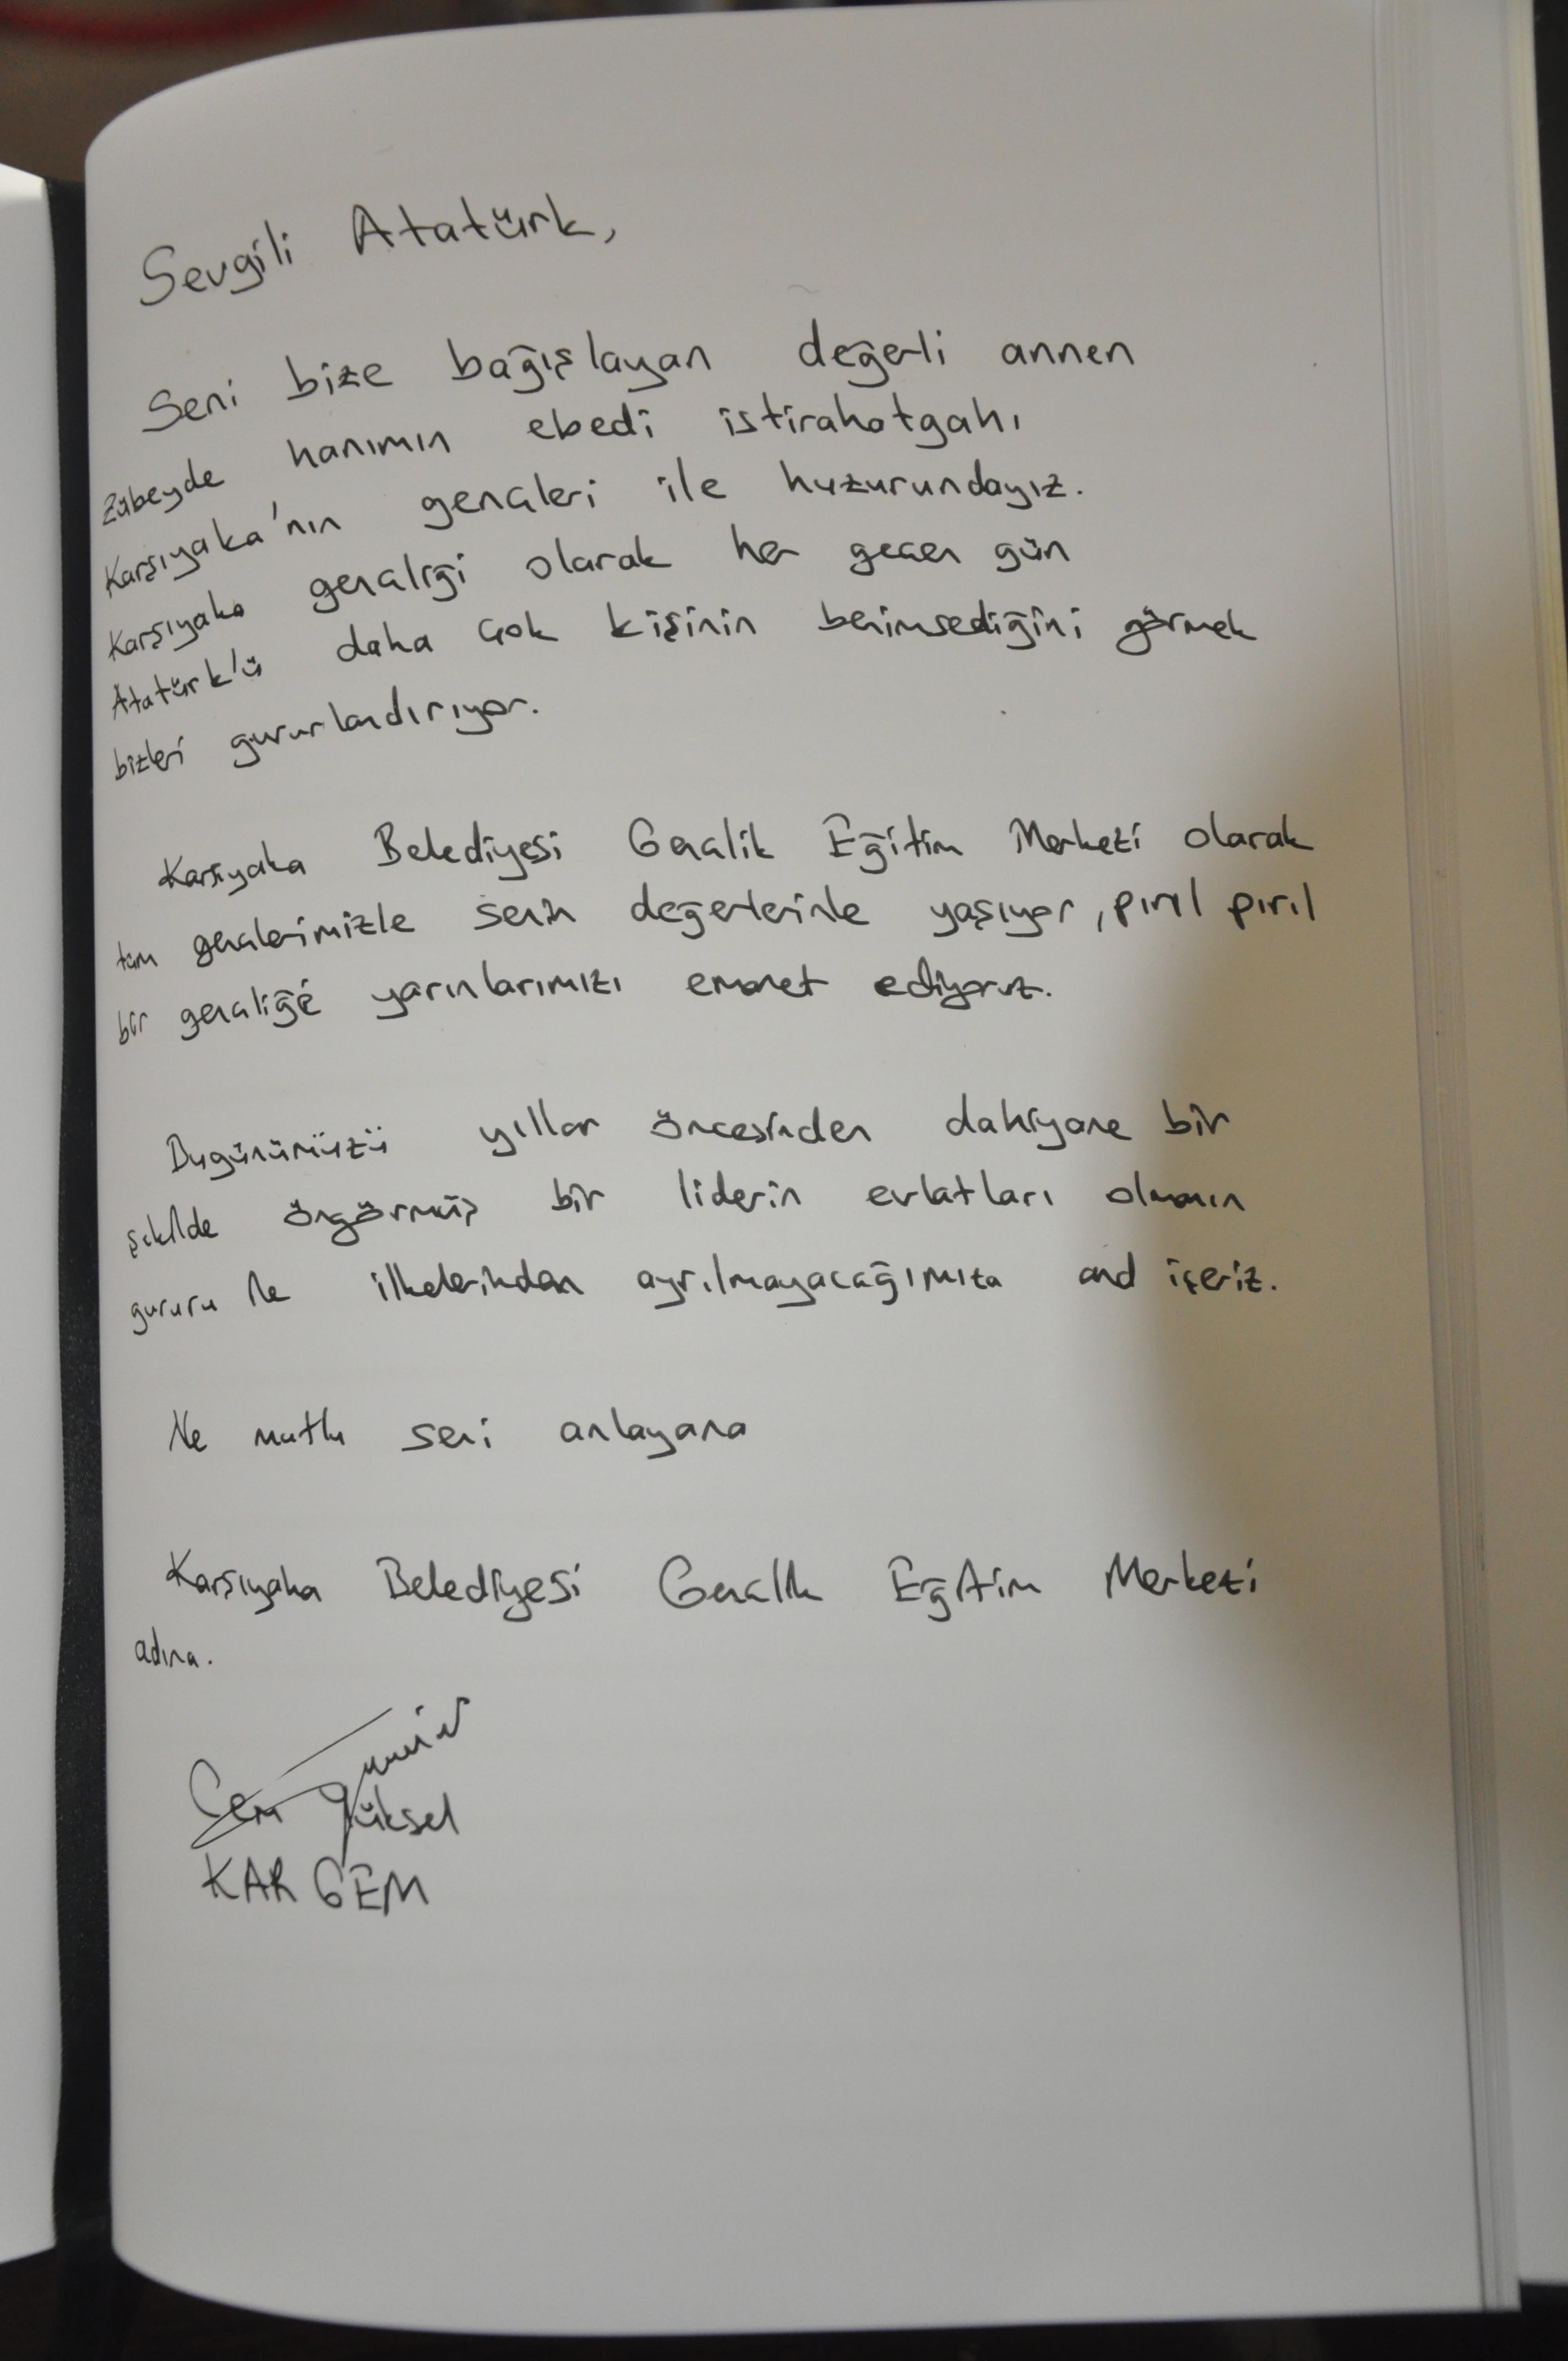 Sevgili Atatürk,
Seni bize bağışlayan değerli annen
Zübeyde hanımın ebedi istirahatgahı
Karşıyaka'nın gençleri ile huzurundayız.
Karşıyaka gençliği olarak her geçen gün
Atatürk'ü daha çok kişinin benimsediğini görmek
bizleri gururlandırıyor.
Karşıyaka Belediyesi Gençlik Eğitim Merkezi olarak
tüm gençlerimizle senin değerlerinle yaşıyor, pırıl pırıl
bir gençliğe yarınlarımızı emanet ediyoruz.
Bugünümüzü yıllar öncesinden dahiyane bir
şekilde öngörmüş bir liderin evlatları olmanın
gururu ile ilkelerinden ayrılmayacağımıza and içeriz.
Ne mutlu seni anlayana
Karşıyaka Belediyesi Gençlik Eğitim Merkezi
adına.
Cem Yüksel
KARGEM